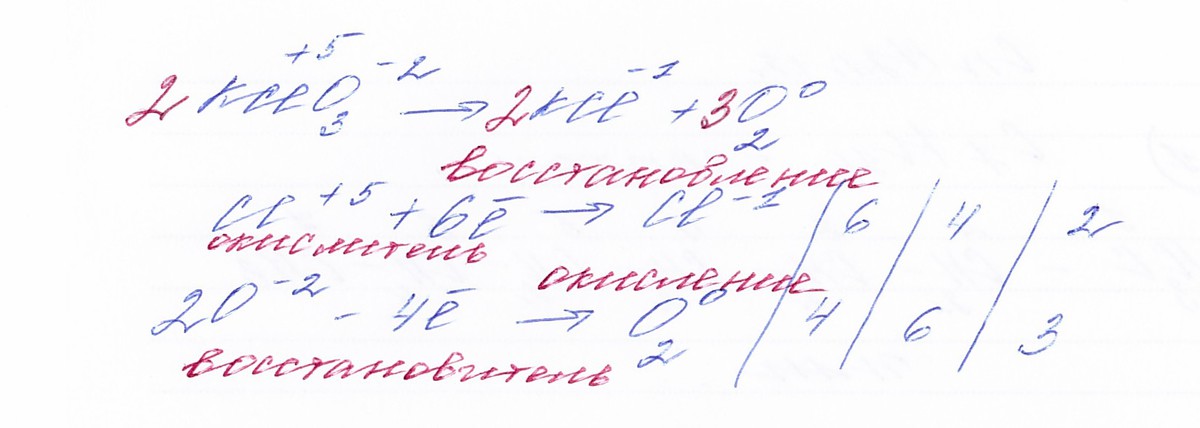 2KClO₃⁺⁵ ⁻² → 2KCl⁻¹ + 3O₂⁰
восстановление
Cl⁺⁵ + 6ē → Cl⁻¹ / 6 / 4 / 2
окислитель
окисление
2O⁻² - 4ē → O₂⁰ / 4 / 6 / 3
восстановитель